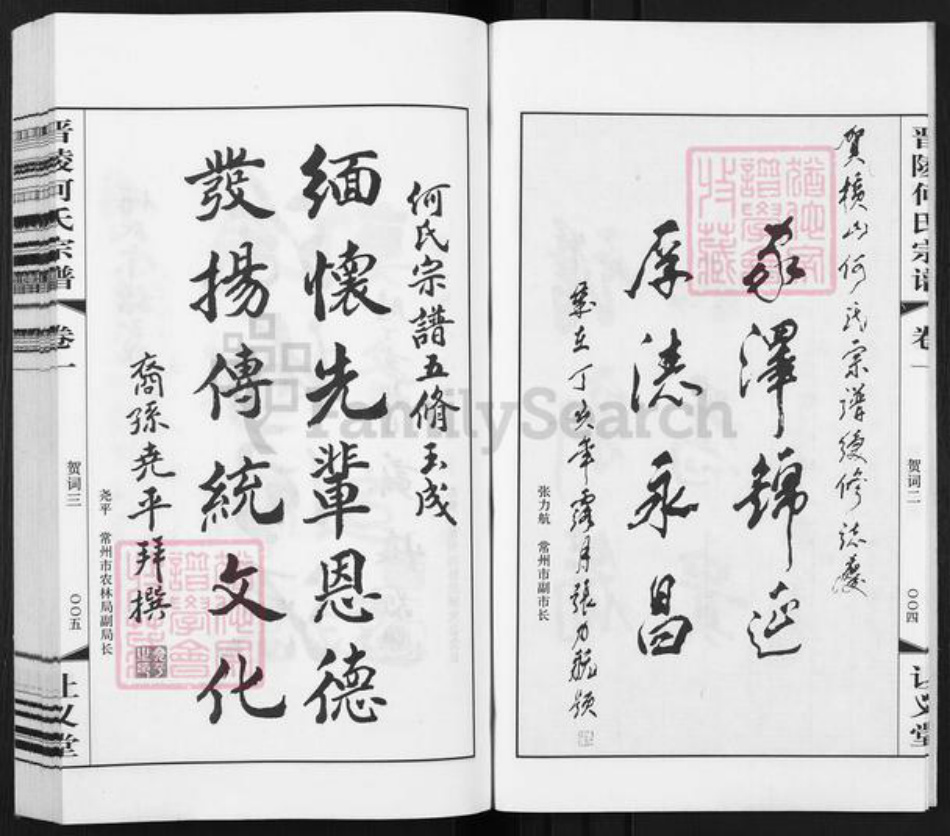 晋陵何氏宗谱
卷一
贺词二
〇〇四
贺横山何氏宗谱续修志庆
家澤錦延
厚德永昌
歲在丁亥年露月張力航题
张力航 常州市副市长
何氏宗譜五修玉成
缅懷先輩恩德
發揚傳統文化
裔孫堯平拜撰
尧平 常州市农林局副局长
晋陵何氏宗谱
卷一
贺词三
〇〇五
FamilySearch